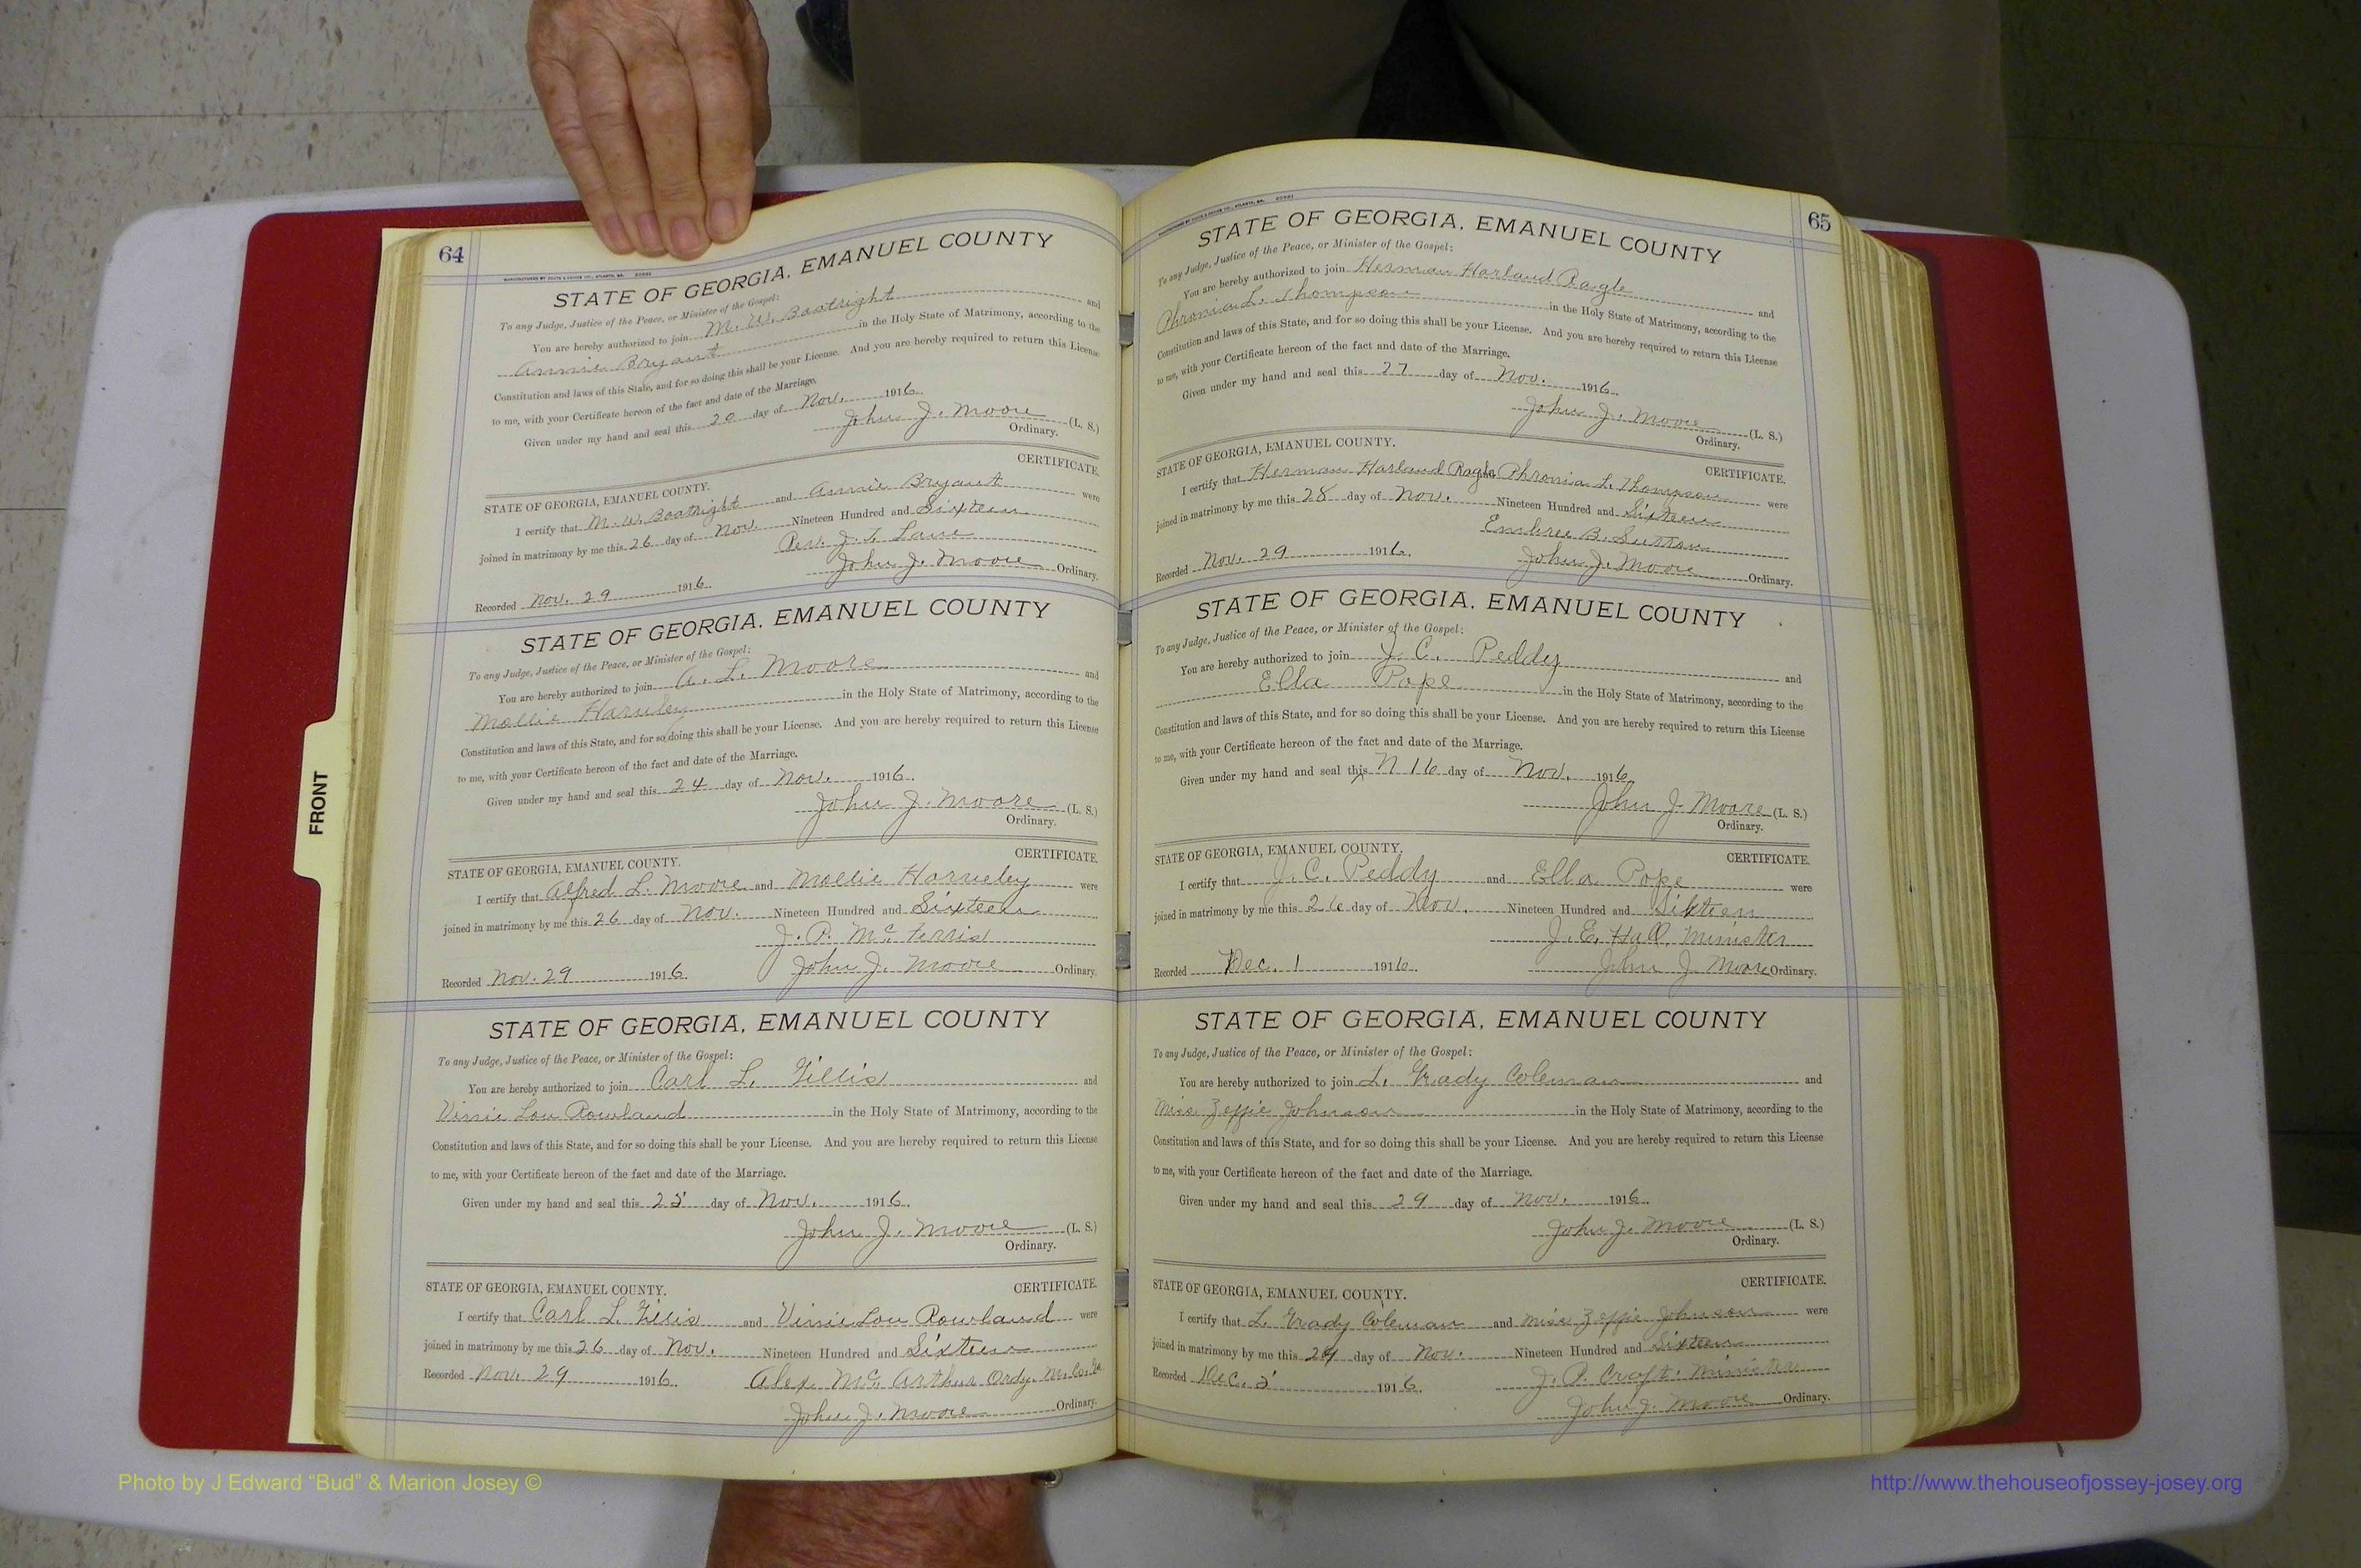 64
STATE OF GEORGIA, EMANUEL COUNTY
To any Judge, Justice of the Peace, or Minister of the Gospel:
You are hereby authorized to join M. W. Boatright and
Annie Bryant in the Holy State of Matrimony, according to the
Constitution and laws of this State, and for so doing this shall be your License. And you are hereby required to return this License
to me, with your Certificate hereon of the fact and date of the Marriage.
Given under my hand and seal this 20 day of Nov. 1916.
John J. Moore (L. S.)
Ordinary.
CERTIFICATE.
STATE OF GEORGIA, EMANUEL COUNTY.
I certify that M. W. Boatright and Annie Bryant were
joined in matrimony by me this 26 day of Nov. Nineteen Hundred and Sixteen
Rev. J. T. Lane
Recorded Nov. 29 1916. John J. Moore Ordinary.
STATE OF GEORGIA, EMANUEL COUNTY
To any Judge, Justice of the Peace, or Minister of the Gospel:
You are hereby authorized to join A. L. Moore and
Mollie Harveley in the Holy State of Matrimony, according to the
Constitution and laws of this State, and for so doing this shall be your License. And you are hereby required to return this License
to me, with your Certificate hereon of the fact and date of the Marriage.
Given under my hand and seal this 24 day of Nov. 1916.
John J. Moore (L. S.)
Ordinary.
STATE OF GEORGIA, EMANUEL COUNTY. CERTIFICATE.
I certify that Alfred L. Moore and Mollie Harveley were
joined in matrimony by me this 26 day of Nov. Nineteen Hundred and Sixteen
J. P. Mc
Recorded Nov. 29 1916. John J. Moore Ordinary.
STATE OF GEORGIA, EMANUEL COUNTY
To any Judge, Justice of the Peace, or Minister of the Gospel:
You are hereby authorized to join Carl L. Gillis and
Vinnie Lou Rowland in the Holy State of Matrimony, according to the
Constitution and laws of this State, and for so doing this shall be your License. And you are hereby required to return this License
to me, with your Certificate hereon of the fact and date of the Marriage.
Given under my hand and seal this 25 day of Nov. 1916.
John J. Moore (L. S.)
Ordinary.
STATE OF GEORGIA, EMANUEL COUNTY. CERTIFICATE.
I certify that Carl L. Gillis and Vinnie Lou Rowland were
joined in matrimony by me this 26 day of Nov. Nineteen Hundred and Sixteen
Recorded Nov. 29 1916. Alex. Mc. Arthur Ordy. M. Co. Ga
John J. Moore Ordinary.
65
STATE OF GEORGIA, EMANUEL COUNTY
To any Judge, Justice of the Peace, or Minister of the Gospel:
You are hereby authorized to join Herman Harland Ragle and
Phronia L. Thompson in the Holy State of Matrimony, according to the
Constitution and laws of this State, and for so doing this shall be your License. And you are hereby required to return this License
to me, with your Certificate hereon of the fact and date of the Marriage.
Given under my hand and seal this 27 day of Nov. 1916.
John J. Moore (L. S.)
Ordinary.
STATE OF GEORGIA, EMANUEL COUNTY. CERTIFICATE.
I certify that Herman Harland Ragle Phronia L. Thompson were
joined in matrimony by me this 28 day of Nov. Nineteen Hundred and Sixteen
Embree B. Sutton
Recorded Nov. 29 1916. John J. Moore Ordinary.
STATE OF GEORGIA, EMANUEL COUNTY
To any Judge, Justice of the Peace, or Minister of the Gospel:
You are hereby authorized to join J. C. Peddy and
Ella Pope in the Holy State of Matrimony, according to the
Constitution and laws of this State, and for so doing this shall be your License. And you are hereby required to return this License
to me, with your Certificate hereon of the fact and date of the Marriage.
Given under my hand and seal this N 16 day of Nov. 1916
John J. Moore (L. S.)
Ordinary.
STATE OF GEORGIA, EMANUEL COUNTY. CERTIFICATE.
I certify that J. C. Peddy and Ella Pope were
joined in matrimony by me this 26 day of Nov. Nineteen Hundred and Sixteen
J. E. Hall, Minister
Recorded Dec. 1 1916. John J. Moore Ordinary.
STATE OF GEORGIA, EMANUEL COUNTY
To any Judge, Justice of the Peace, or Minister of the Gospel:
You are hereby authorized to join L. Grady Coleman and
Miss Zeffie Johnson in the Holy State of Matrimony, according to the
Constitution and laws of this State, and for so doing this shall be your License. And you are hereby required to return this License
to me, with your Certificate hereon of the fact and date of the Marriage.
Given under my hand and seal this 29 day of Nov. 1916.
John J. Moore (L. S.)
Ordinary.
STATE OF GEORGIA, EMANUEL COUNTY. CERTIFICATE.
I certify that L. Grady Coleman and Miss Zeffie Johnson were
joined in matrimony by me this 29 day of Nov. Nineteen Hundred and Sixteen
Recorded Dec. 5 1916. J. P. Craft. Minister
John J. Moore Ordinary.
FRONT
Photo by J Edward "Bud" & Marion Josey ©
http://www.thehouseofjossey-josey.org